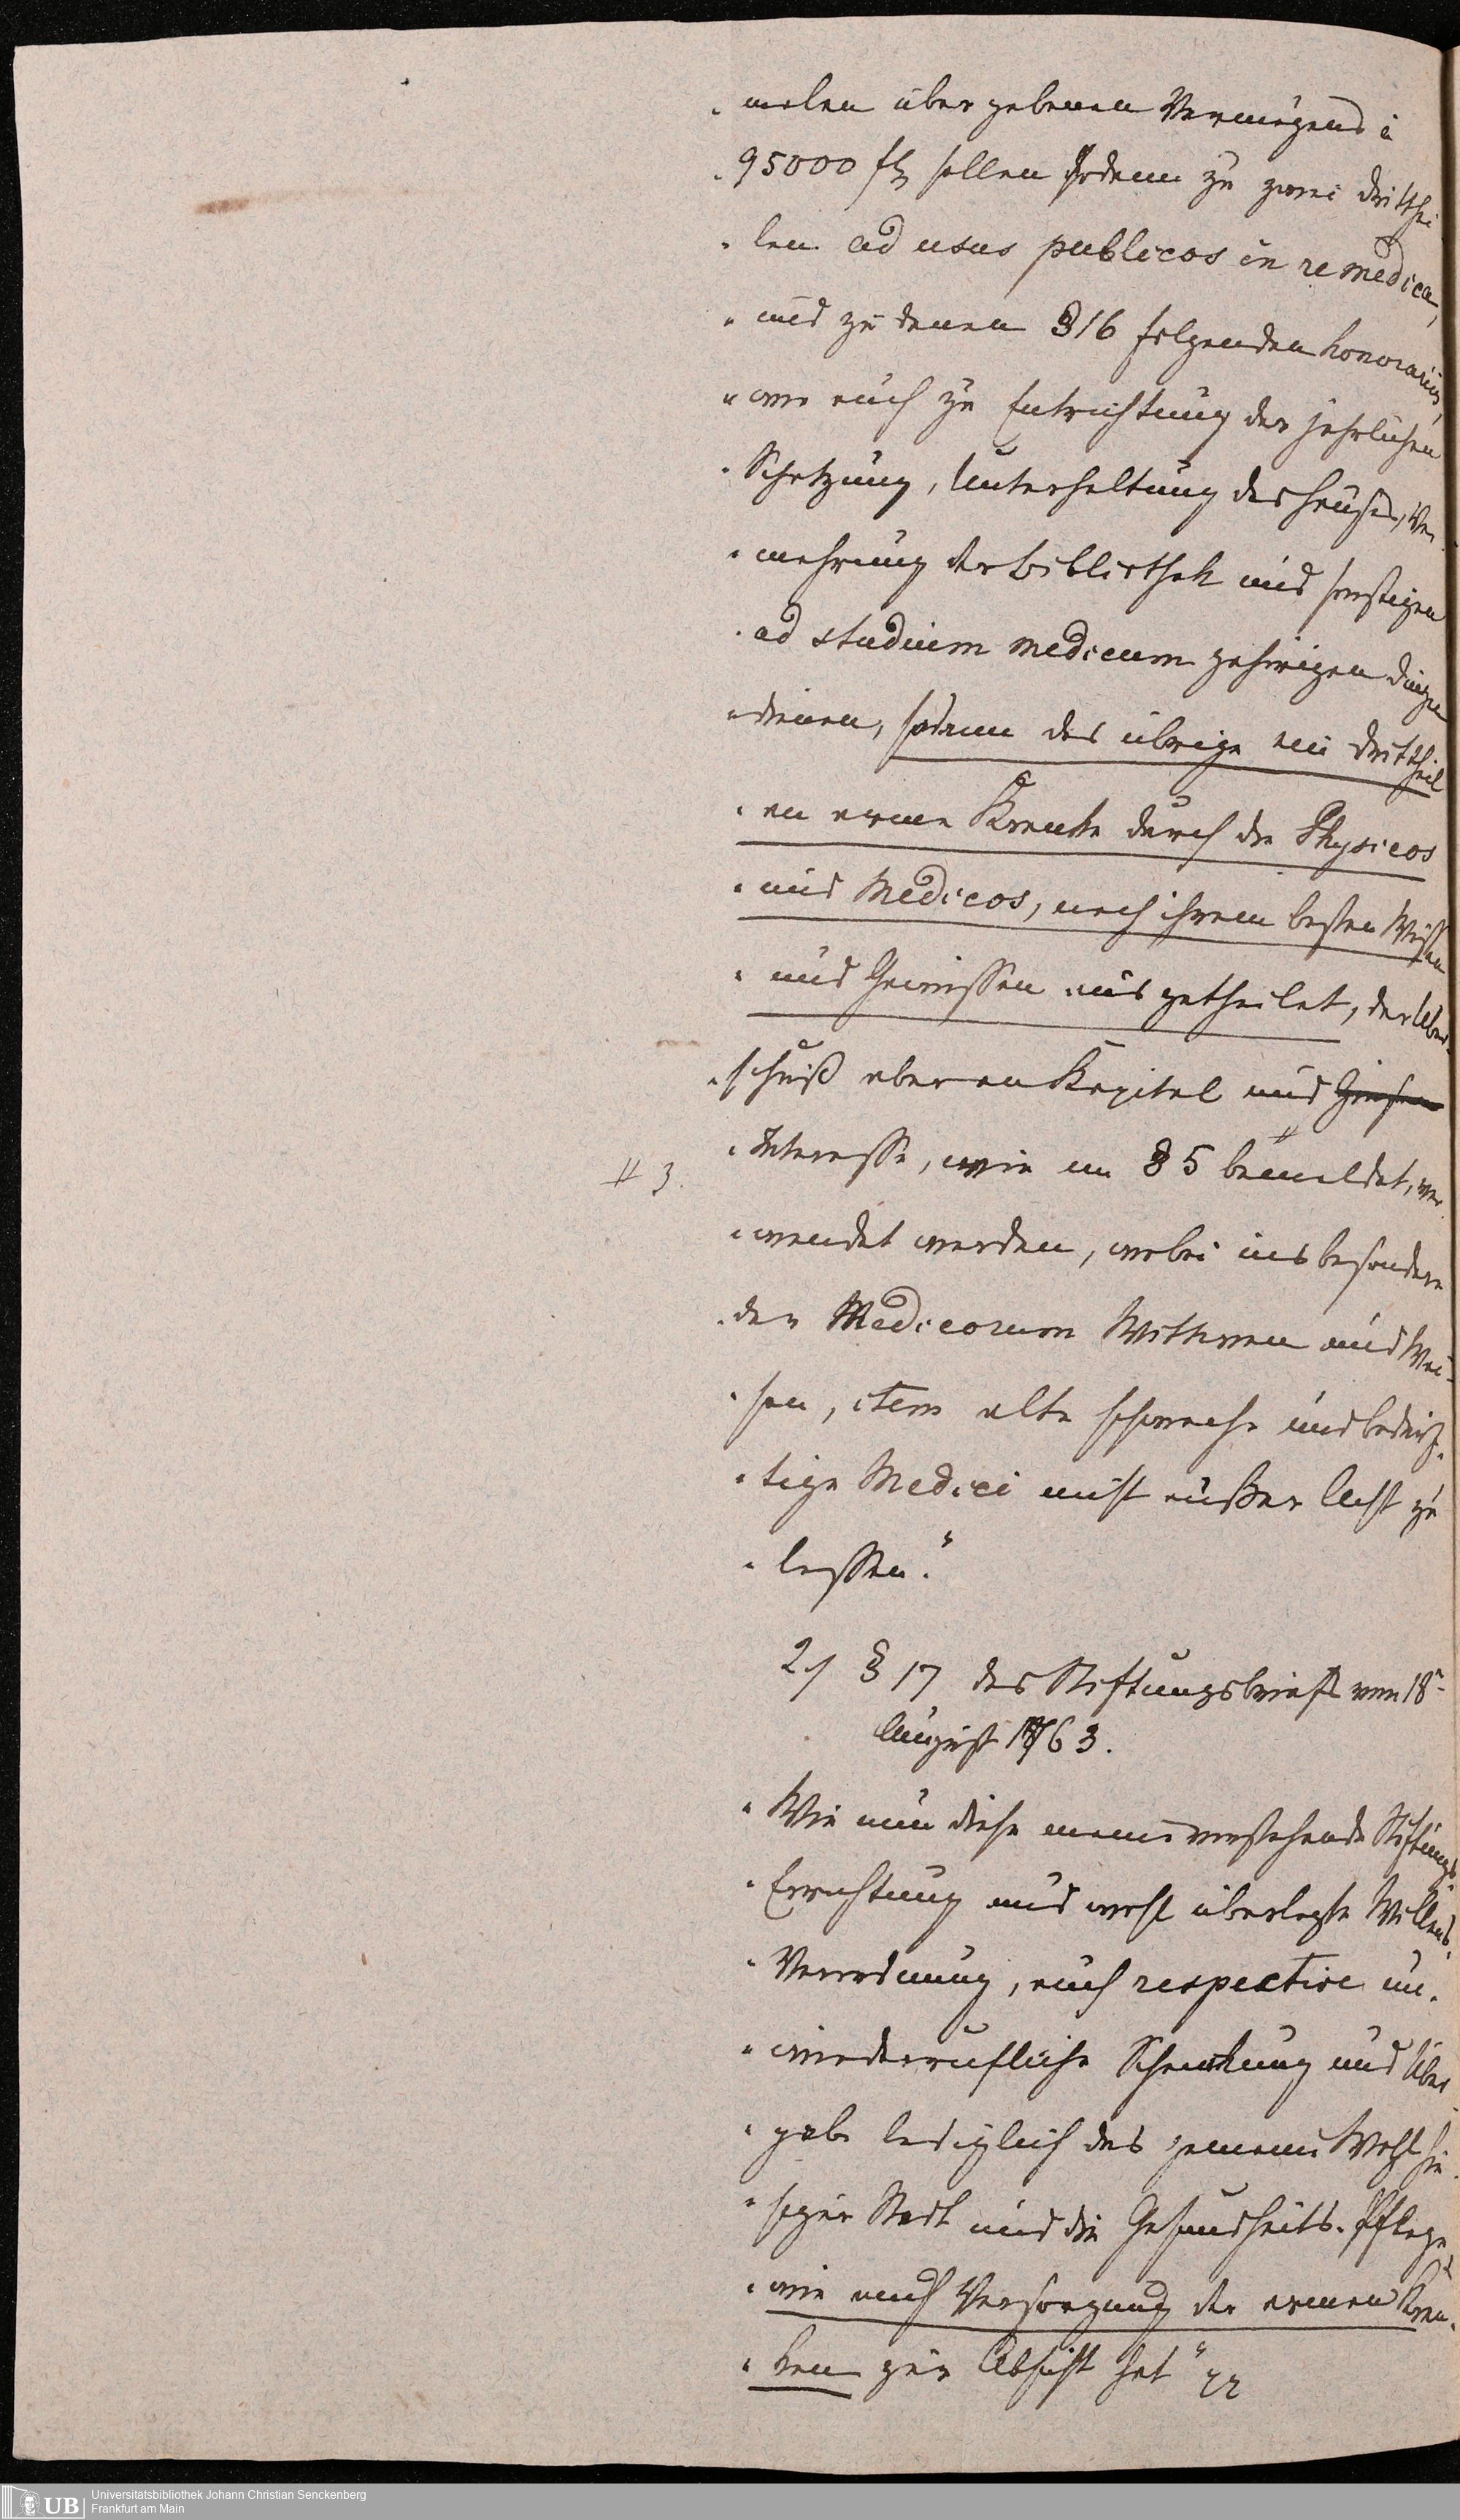 „malen übergebenen Vermögens à
„95000 fl. sollen sodann zu zwei Dritthei-
„len ad usus publicos in re medica,
„und zu denen § 16 folgenden honorariis,
„wie auch zu Entrichtung der jährlichen
„Schatzung, Unterhaltung des Hauses, Ver-
„mehrung der Bibliothek und sonstigen
„ad studium medicum gehörigen Dingen
„dienen, sodann das übrige ein Drittheil
„an arme Kranke durch die Physicos
„und Medicos, nach ihrem besten Wissen
„und Gewissen ausgetheilet, der Über-
„schuß aber an Kapital und
„Interesse, wie im § 5 bemeldet, ver-
# 3.
„wendet werden, wobei insbesondere
„der Medicorum Wittwen und Wai-
„sen, item alte schwache und bedürf-
„tige Medici nicht außer Acht zu
„lassen.“
2./ § 17 des Stiftungsbriefs vom 18n
August 1763.
„Wie nun diese meine vorstehende Stiftungs-
„Errichtung und wohl überlegte Willens-
„Verordnung, auch respective un-
„wiederrufliche Schenkung und Über-
„gabe lediglich das gemeine Wohl hie-
„siger Stadt und die Gesundheits-Pflege
„wie auch Versorgung der armen Kran-
„ken zur Absicht hat“
UB Universitätsbibliothek Johann Christian Senckenberg
Frankfurt am Main